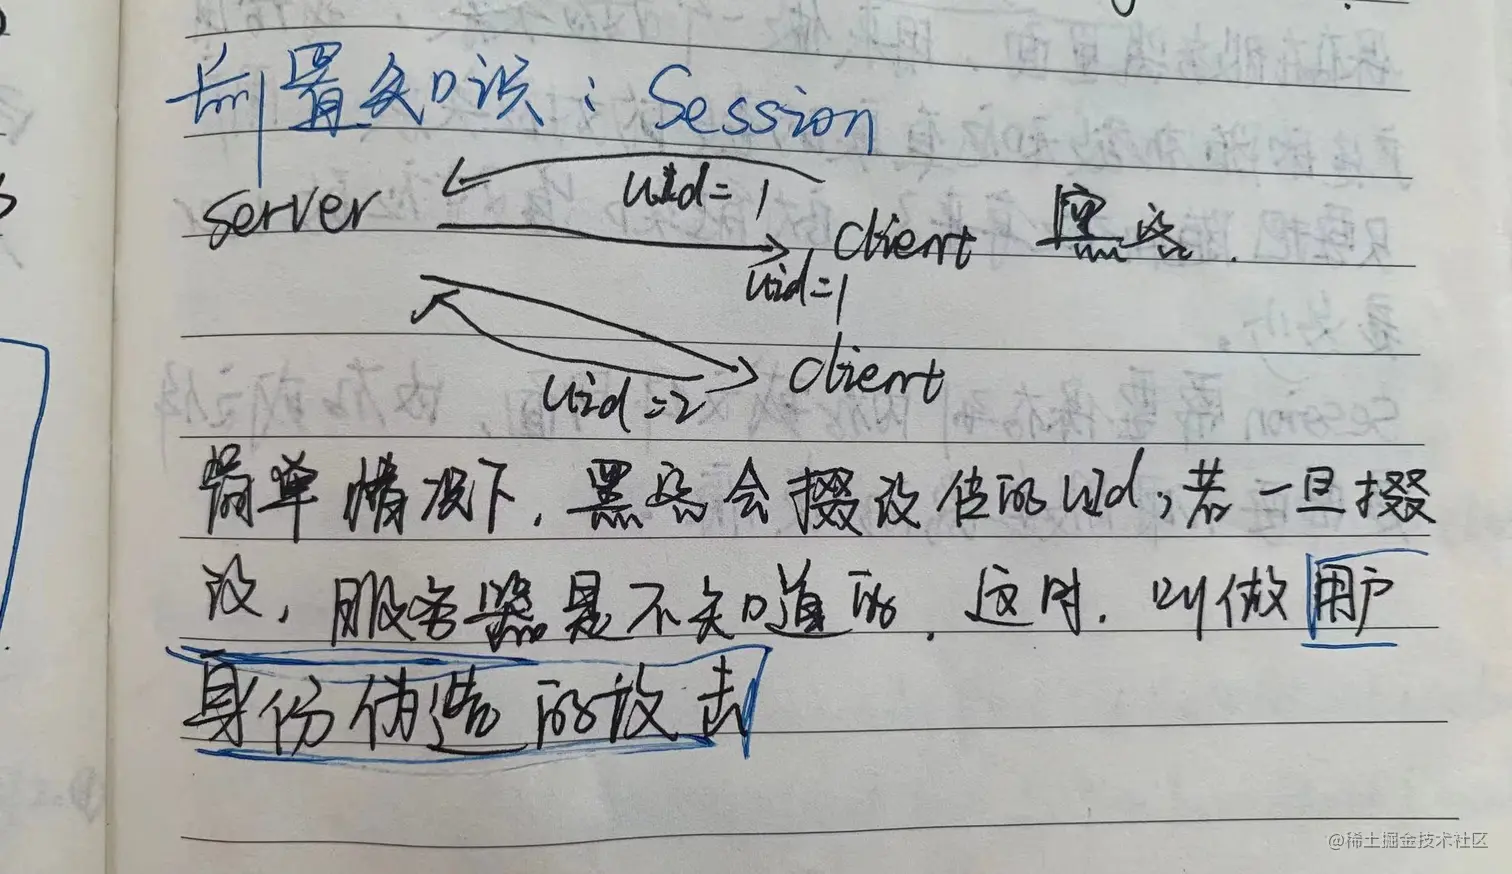 前置知识：Session
server
uid=1
client 黑客.
uid=1
client
uid=2
简单情况下，黑客会掇改他的uid；若一旦掇
改，服务器是不知道的．这时．叫做用户
身份伪造的攻击
@稀土掘金技术社区